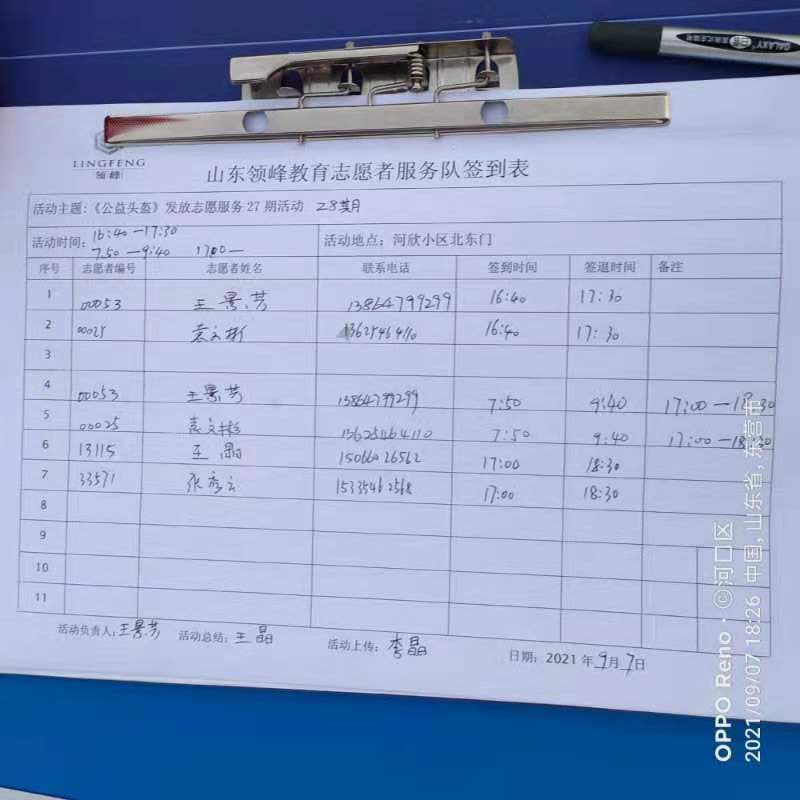 GALAXY
LINGFENG
领峰
山东领峰教育志愿者服务队签到表
活动主题:《公益头盔》发放志愿服务27期活动 28期
活动时间: 16:40—17:30
7.50—9:40 17:00—
活动地点：河欣小区北东门
序号 志愿者编号 志愿者姓名 联系电话 签到时间 签退时间 备注
1 00053 王景芳 13864799299 16:40 17:30
2 00025 袁文彬 13625464110 16:40 17:30
3
4 00053 王景芳 13864799299 7:50 9:40 17:00—18:30
5 00025 袁文彬 13625464110 7:50 9:40 17:00—18:30
6 13115 王晶 15066026562 17:00 18:30
7 33571 张彦云 15335462568 17:00 18:30
8
9
10
11
活动负责人:王景芳 活动总结:王晶 活动上传:李晶 日期：2021年9月7日
OPPO Reno · ©河口区
2021/09/07 18:26 中国, 山东省, 东营市